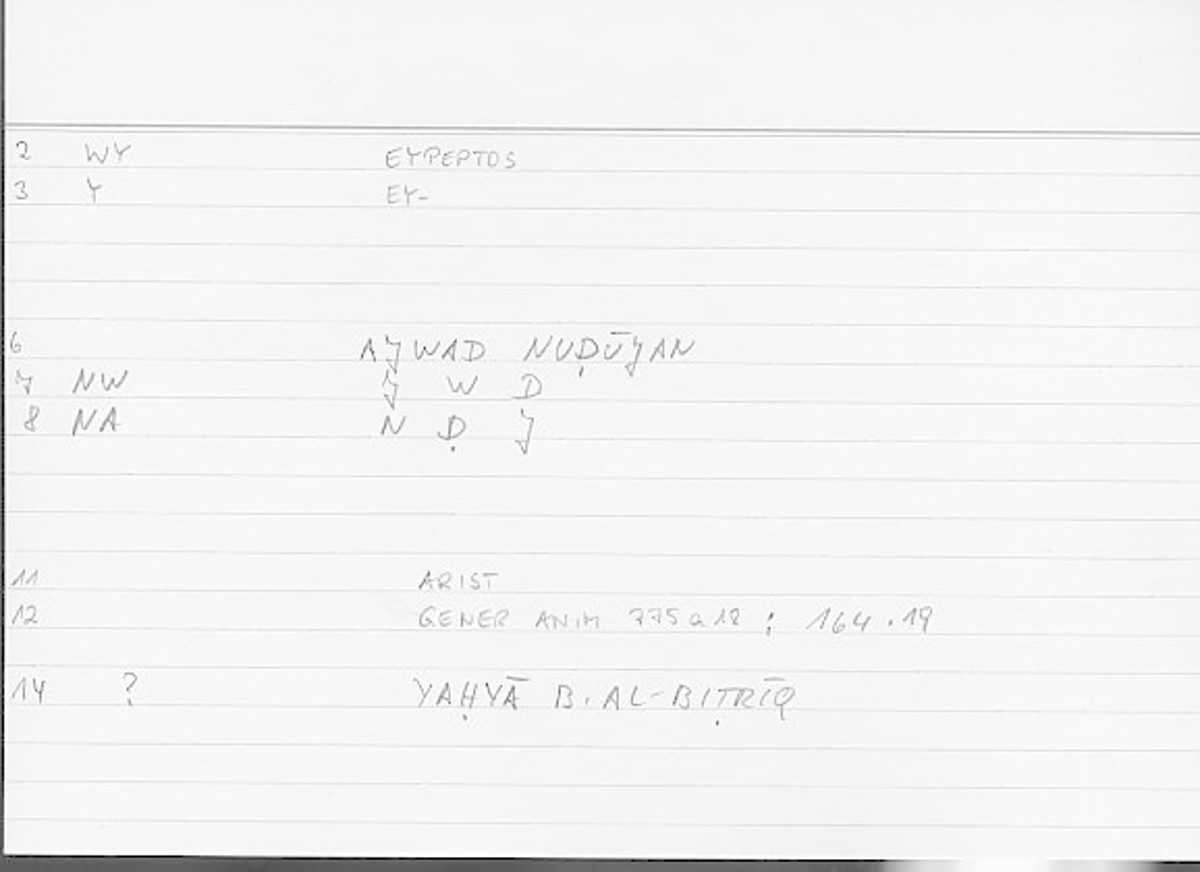 2 WY EYPEPTOS
3 Y EY-
6 AJWAD NUḌŪJAN
7 NW J W D
8 NA N Ḍ J
11 ARIST
12 GENER ANIM 775a18 : 164.19
14 ? YAḤYĀ B. AL-BIṬRĪQ